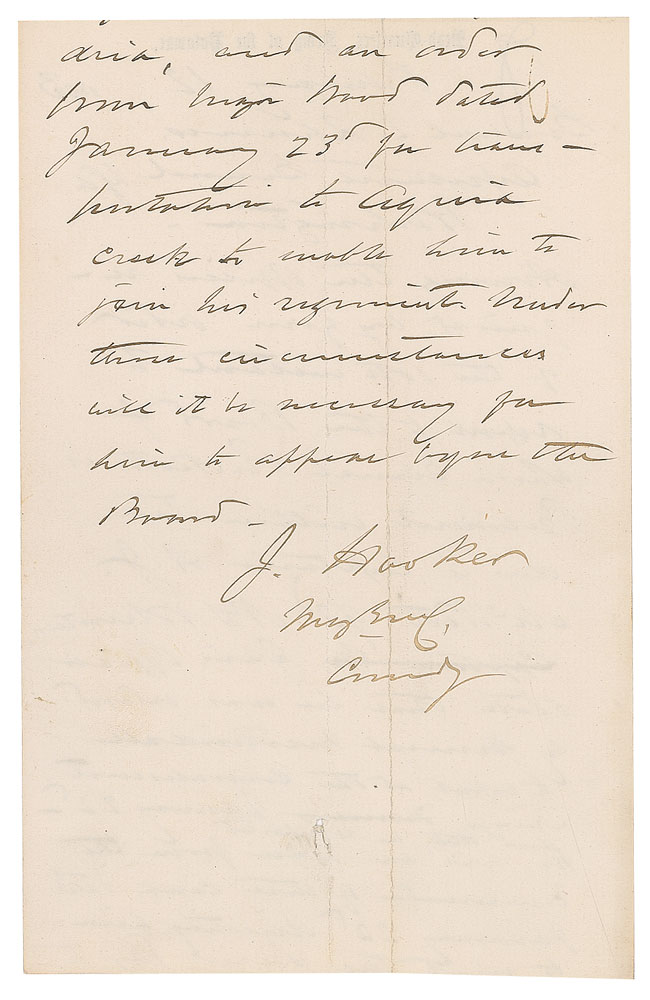 dria, and an order
from Major Wood dated
January 23d for trans-
portation to Aquia
Creek to enable him to
join his regiment. Under
these circumstances
will it be necessary for
him to appear before the
Board.
J. Hooker
Maj Genl,
Comdg